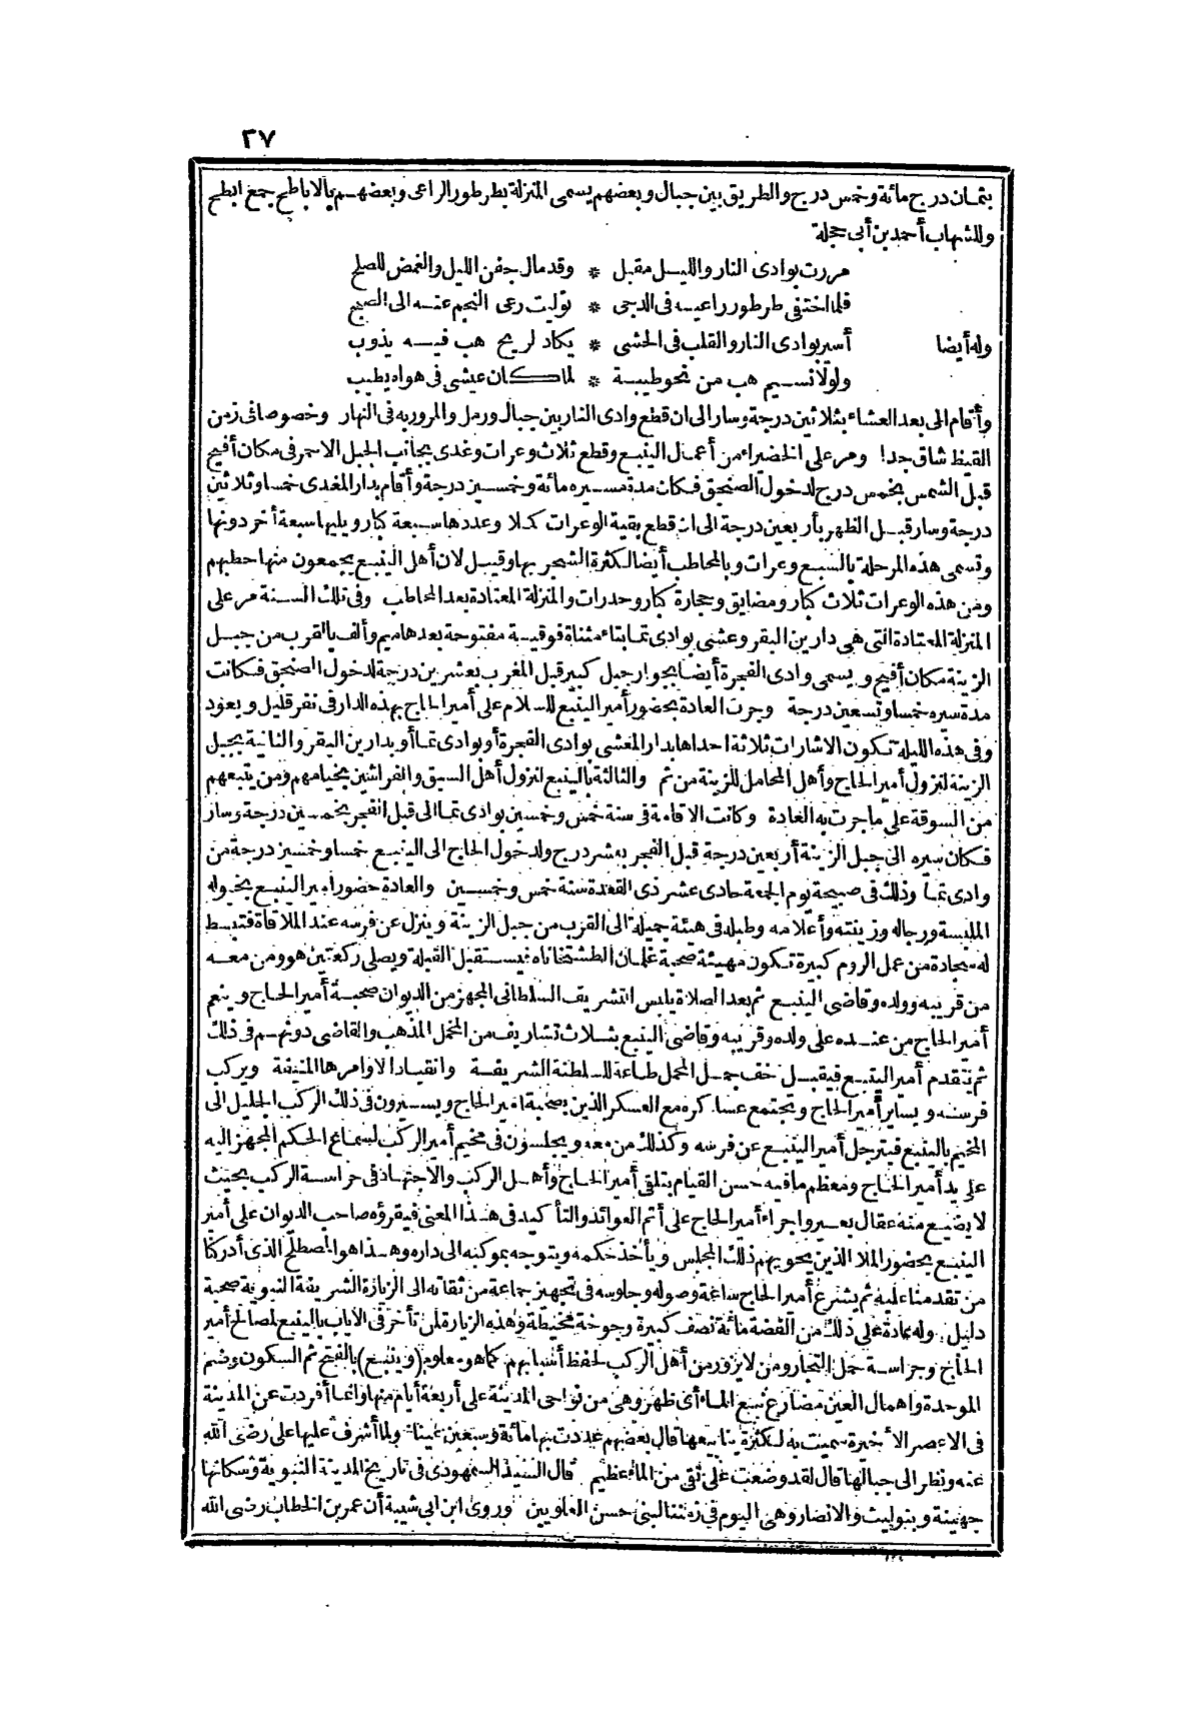 ٢٧
بثمان درج مائة وخمس درج والطريق بين جبال وبعضهم يسمى المنزلة بطرطور الراعى وبعضهم بالاباطح جمع ابطح
وللشهاب أحمد بن أبى حجلة
مررت بوادى النار والليل مقبل * وقد مال جفن الليل والغمض للصلح
فلما اختفى طرطور راعيه فى الدجى * توليت رعى النجم عنه الى الصبح
وله أيضا أسير بوادى النار والقلب فى الحشى * يكاد لريح هب فيه يذوب
ولولا نسيم هب من نحو طيبة * لما كان عيشى فى هواه يطيب
وأقام الى بعد العشاء بثلاثين درجة وسار الى ان قطع وادى النار بين جبال ورمل والمرور به فى النهار وخصوصا فى زمن
القيظ شاق جدا ومر على الخضيراء من أعمال الينبع وقطع ثلاث وعرات وغدى بجانب الجبل الاحمر فى مكان أفيح
قبل الشمس بخمس درج لدخول الصنجق فكان مدة مسيره مائة وخمسين درجة وأقام بدار المغدى خمسا وثلاثين
درجة وسار قبل الظهر بأربعين درجة الى ان قطع بقية الوعرات كملا وعددها سبعة كبار ويليها سبعة أخر دونها
وتسمى هذه المرحلة بالسبع وعرات وبالمحاطب أيضا لكثرة الشجر بها وقيل لان أهل الينبع يجمعون منها حطبهم
ومن هذه الوعرات ثلاث كبار ومضايق وحجارة كبار وحدرات والمنزلة المعتادة بعد المحاطب وفى تلك السنة مر على
المنزلة المعتادة التى هى دارين البقر وعشى بوادى تما بتاء مثناة فوقية مفتوحة بعدها ميم وألف بالقرب من جبل
الزينة مكان أفيح ويسمى وادى الفجرة أيضا بجوار جبل كبير قبل المغرب بعشرين درجة لدخول الصنجق فكانت
مدة سيره خمسا وتسعين درجة وجرت العادة بحضور أمير الينبع للسلام على أمير الحاج بهذه الدار فى نفر قليل ويعود
وفى هذه الليلة تكون الاشارات ثلاثة احداها بدار المعشى بوادى الفجرة أو بوادى تما أو بدارين البقر والثانية بجبل
الزينة لنزول أمير الحاج وأهل المحامل للزينة من ثم والثالثة بالينبع لنزول أهل السبق والفراشين بخيامهم ومن يتبعهم
من السوقة على ما جرت به العادة وكانت الاقامة فى سنة خمس وخمسين بوادى تما الى قبل الفجر بخمسين درجة وسار
فكان سيره الى جبل الزينة أربعين درجة قبل الفجر بعشر درج ولدخول الحاج الى الينبع خمسا وخمسين درجة من
وادى تما وذلك فى صبيحة يوم الجمعة حادى عشر ذى القعدة سنة خمس وخمسين والعادة حضور أمير الينبع بخيوله
الملبسة ورجاله وزينته وأعلامه وطبله فى هيئة جميلة الى القرب من جبل الزينة وينزل عن فرسه عند الملاقاة فتبسط
له سجادة من عمل الروم كبيرة تكون مهيئة صحبة غلمان الطشتخاناه فيستقبل القبلة ويصلى ركعتين هو ومن معه
من قريبه وولده وقاضى الينبع ثم بعد الصلاة يلبس التشريف السلطانى المجهز من الديوان صحبة أمير الحاج وينعم
أمير الحاج من عنده على ولده وقريبه وقاضى الينبع بثلاث تشاريف من المخمل المذهب والقاضى دونهم فى ذلك
ثم يتقدم أمير الينبع فيقبل خف جمل المحمل طاعة للسلطنة الشريفة وانقيادا لاوامرها المنيفة ويركب
فرسه ويساير أمير الحاج وتجتمع عساكره مع العسكر الذين بصحبة أمير الحاج ويسيرون فى ذلك الركب الجليل الى
المخيم بالينبع فيترجل أمير الينبع عن فرسه وكذلك من معه ويجلسون فى مخيم أمير الركب لسماع الحكم المجهز اليه
على يد أمير الحاج ومعظم ما فيه حسن القيام بتلقى أمير الحاج وأهل الركب والاجتهاد فى حراسة الركب بحيث
لا يضيع منه عقال بعير واجراء أمير الحاج على أتم العوائد والتأكيد فى هذا المعنى فيقرؤه صاحب الديوان على أمير
الينبع بحضور الملا الذين يحويهم ذلك المجلس ويأخذ حكمه ويتوجه بموكبه الى داره وهذا هو المصطلح الذى أدركنا
من تقدمنا عليه ثم يشرع أمير الحاج ساعة وصوله وجلوسه فى تجهيز جماعة من ثقاته الى الزيارة الشريفة النبوية صحبة
دليل وله عادة على ذلك من الفضة مائة نصف كبيرة وجوخة مخيطة وهذه الزيارة لمن تأخر فى الاياب بالينبع لمصالح أمير
الحاج وحراسة حمل التجار ومن لا يزور من أهل الركب لحفظ أسبابهم كما هو معلوم (وينبع) بالفتح ثم السكون وضم
الموحدة واهمال العين مضارع نبع الماء أى ظهر وهى من نواحى المدينة على أربعة أيام منها وانما أفردت عن المدينة
فى الاعصر الاخيرة سميت به لكثرة ينابيعها قال بعضهم عددت بها مائة وسبعين عينا ولما أشرف عليها على رضى الله
عنه ونظر الى جبالها قال لقد وضعت على نقى من الماء عظيم قال السيد السمهودى فى تاريخ المدينة النبوية وسكانها
جهينة وبنو ليث والانصار وهى اليوم فى زمننا لبنى حسن العلويين وروى ابن أبى شيبة أن عمر بن الخطاب رضى الله